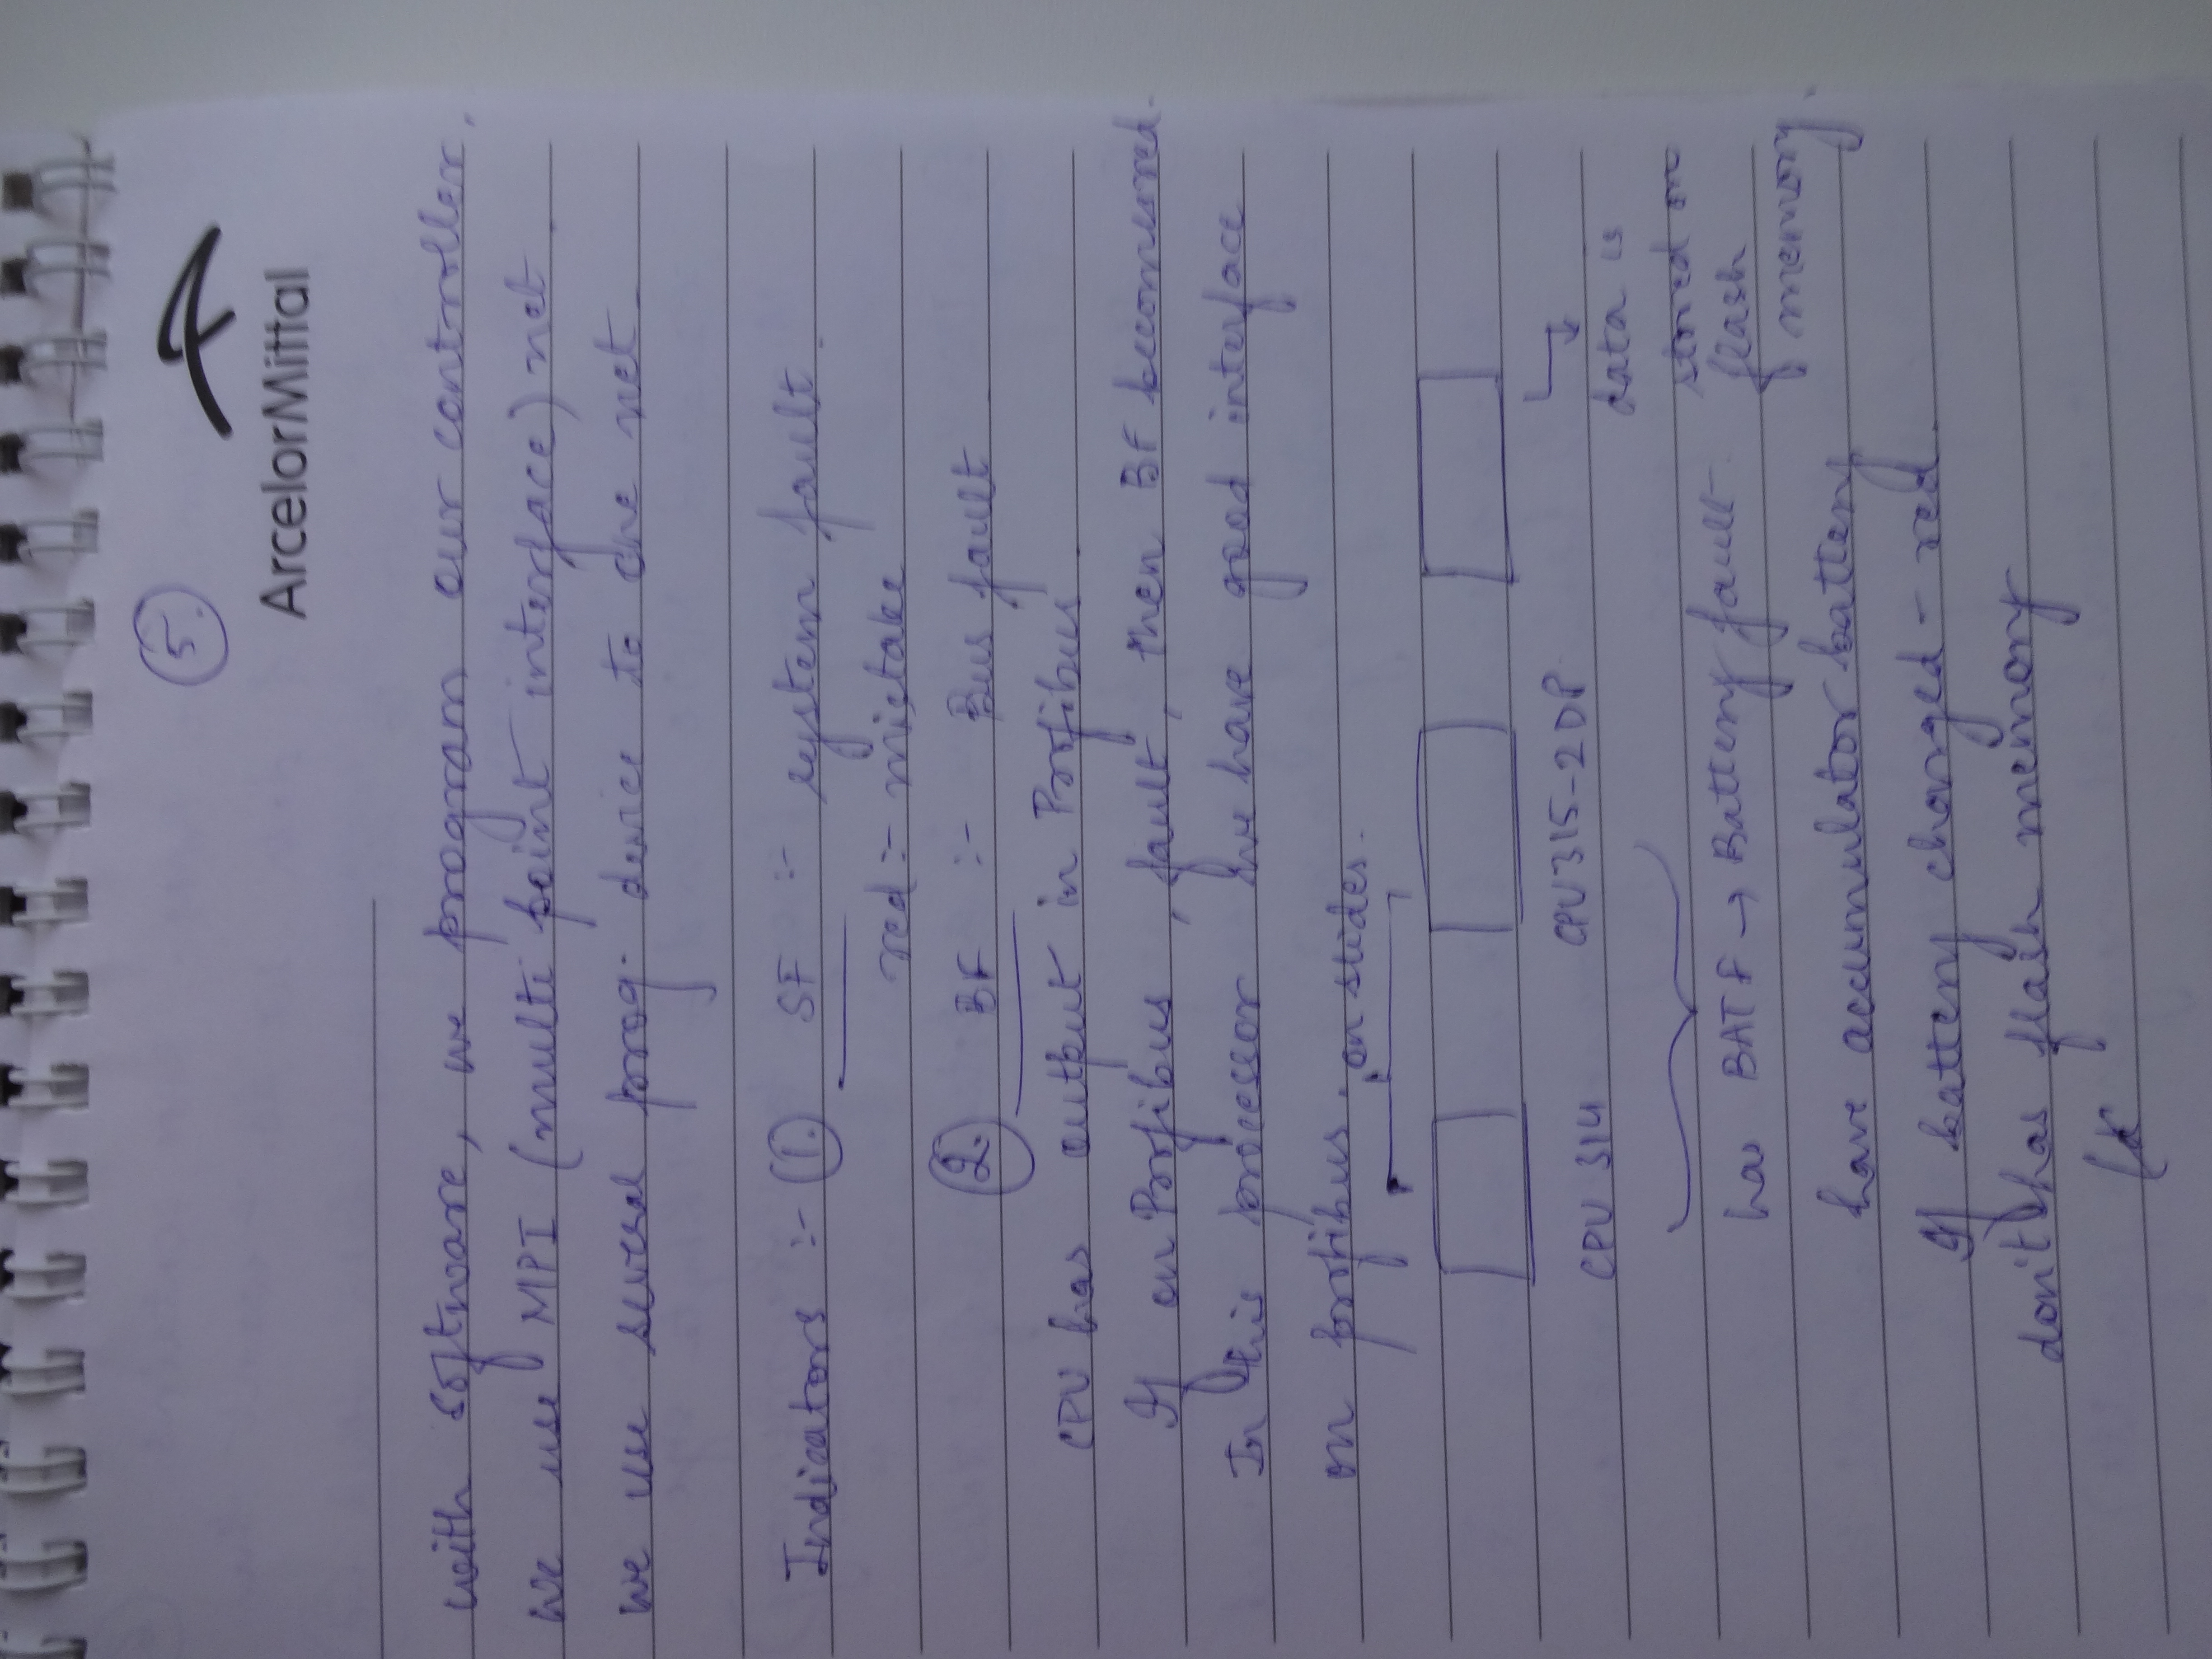 5.
ArcelorMittal
with software, we program our controller.
we use MPI (multi point interface) net.
we use several prog. device to one net.
Indicators :- 1. SF :- system fault.
red :- mistake
2. BF :- Bus fault
CPU has output in Profibus
If on Profibus, fault, then BF becomes red.
In this processor we have good interface
on profibus. on slides.
CPU 314 CPU315-2DP
data is
stored on
flash
memory.
has BATF → Battery fault.
have accumulator battery
If battery changed - red.
don't has flash memory